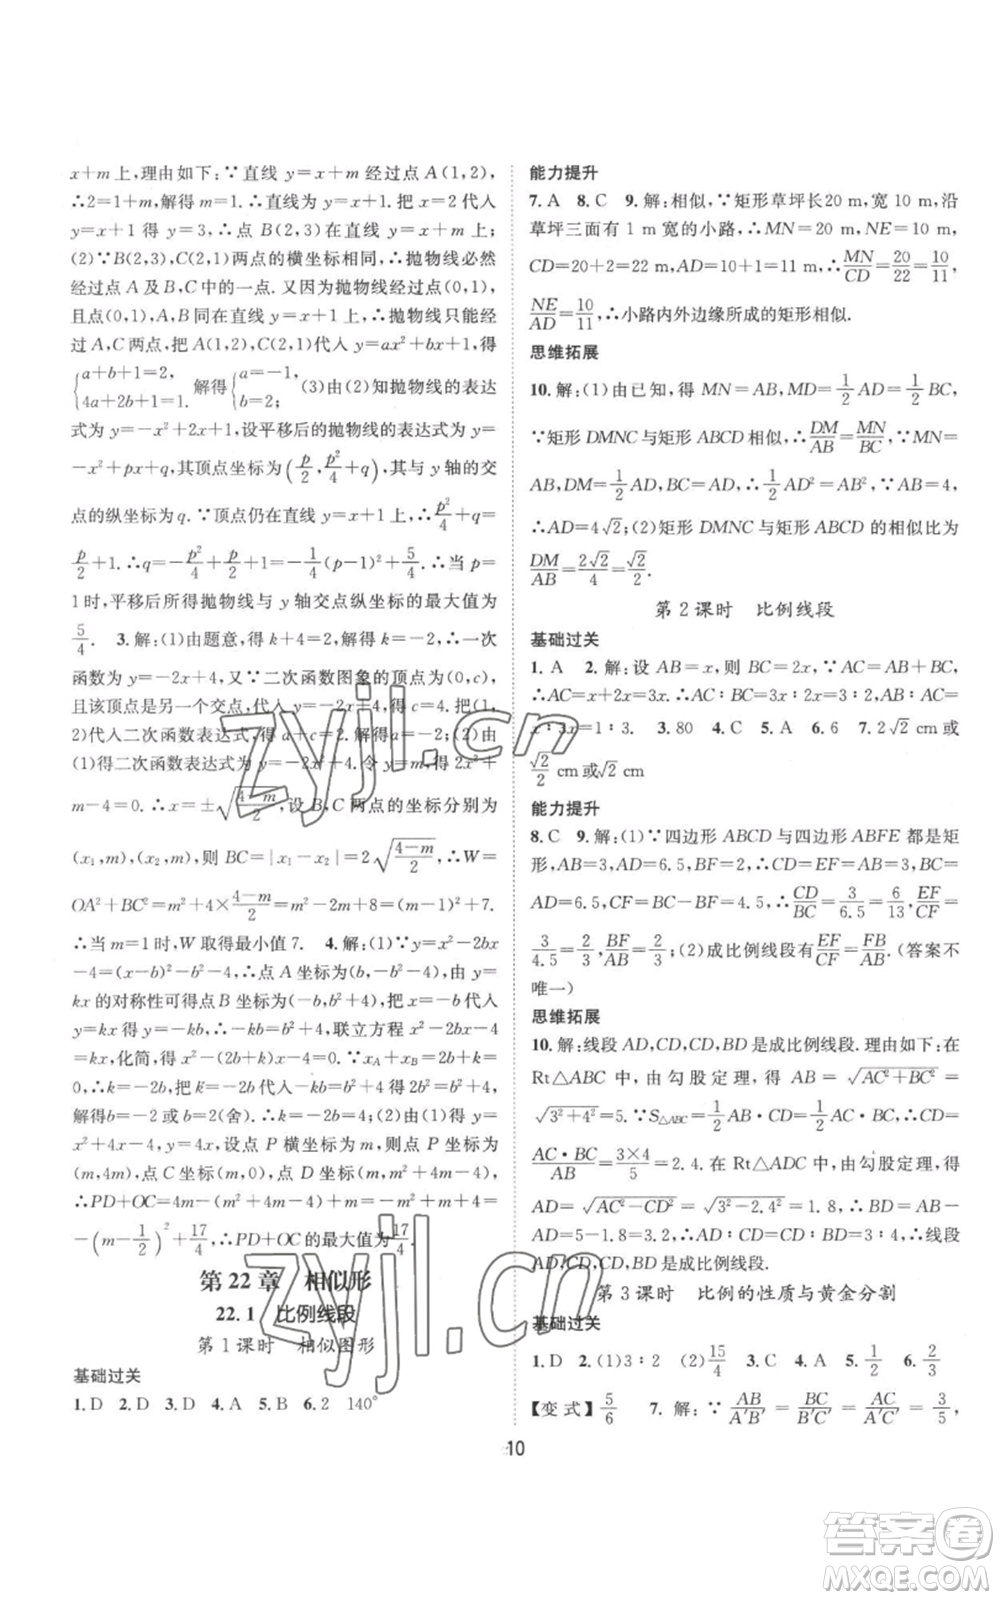 x+m上,理由如下:∵直线 y=x+m 经过点 A(1,2),
∴2=1+m,解得m=1.∴直线为y=x+1.把x=2代入
y=x+1得y=3,∴点B(2,3)在直线y=x+m上;
(2)∵B(2,3),C(2,1)两点的横坐标相同,∴抛物线必然
经过点A及B,C中的一点.又因为抛物线经过点(0,1),
且点(0,1),A,B同在直线y=x+1上,∴抛物线只能经
过A,C两点,把A(1,2),C(2,1)代入y=ax²+bx+1,得
{a+b+1=2, 4a+2b+1=1. 解得{a=-1, b=2;(3)由(2)知抛物线的表达
式为y=-x²+2x+1,设平移后的抛物线的表达式为y=
-x²+px+q,其顶点坐标为(p/2,p²/4+q),其与y轴的交
点的纵坐标为q.∵顶点仍在直线y=x+1上,∴p²/4+q=
p/2+1.∴q=-p²/4+p/2+1=-1/4(p-1)²+5/4.∴当p=
1时,平移后所得抛物线与y轴交点纵坐标的最大值为
5/4. 3.解:(1)由题意,得k+4=2,解得k=-2,∴一次
函数为y=-2x+4.又∵二次函数图象的顶点为(0,c),
且该顶点是另一个交点,代入得c=4.把(1,
2)代入二次函数表达式,得a+c=2.解得a=-2;(2)由
(1)得二次函数表达式为y=-2x²+4.令y=m,得2x²+
m-4=0.∴x=±√((4-m)/2),设B,C两点的坐标分别为
(x₁,m),(x₂,m),则BC=|x₁-x₂|=2√((4-m)/2),∴W=
OA²+BC²=m²+4×(4-m)/2=m²-2m+8=(m-1)²+7.
∴当m=1时,W取得最小值7. 4.解:(1)∵y=x²-2bx
+b²-4=(x-b)²-4,
y=kx的对称性可得点B坐标为(-b,b²+4),把x=-b代入
y=kx得y=-kb,∴-kb=b²+4,联立方程
=kx,化简,得
=0,∴k=-2b,把k=-2b代入-kb=b²+4得2b²=b²+4,
解得b=-2或b=2(舍).∴k=-2b=4;(2)由(1)得y=
x²+4x-4或y=4x,设点P横坐标为m,则点P坐标为
(m,4m),点C坐标(m,0),点D坐标(m,m²+4m-4),
∴PD+OC=4m-(m²+4m-4)+m=-m²+m+4=
-(m-1/2)²+17/4,∴PD+OC的最大值为17/4.
第22章 相似形
22.1 比例线段
第1课时 相似图形
基础过关
1.D 2.D 3.D 4.A 5.B 6.2 140°
能力提升
7.A 8.C 9.解:相似,∵矩形草坪长20 m,宽10 m,沿
草坪三面有1 m宽的小路,∴MN=20 m,NE=10 m,
CD=20+2=22 m,AD=10+1=11 m,∴MN/CD=20/22=10/11,
NE/AD=10/11,∴小路内外边缘所成的矩形相似.
思维拓展
10.解:(1)由已知,得MN=AB,MD=1/2AD=1/2BC,
∵矩形DMNC与矩形ABCD相似,∴DM/AB=MN/BC,∵MN=
AB,DM=1/2AD,BC=AD,∴1/2AD²=AB²,∵AB=4,
∴AD=4√2;(2)矩形DMNC与矩形ABCD的相似比为
DM/AB=2√2/4=√2/2.
第2课时 比例线段
基础过关
1.A 2.解:设AB=x,则BC=2x,∵AC=AB+BC,
∴AC=x+2x=3x.∴AB∶AC=
x∶3x=1∶3. 3.80 4.C 5.A 6.6 7.2√2 cm或
√2/2 cm或√2 cm
能力提升
8.C 9.解:(1)∵四边形ABCD与四边形ABFE都是矩
形,AB=3,AD=6.5,BF=2,∴CD=EF=AB=3,BC=
AD=6.5,CF=4.5,∴CD/BC=3/6.5=6/13,EF/CF=
3/4.5=2/3,BF/AB=2/3;(2)成比例线段有EF/CF=FB/AB.(答案不
唯一)
思维拓展
10.解:线段AD,CD,CD,BD是成比例线段.理由如下:在
Rt△ABC中,由勾股定理,得AB=√(AC²+BC²)=
√(3²+4²)=5.∵S△ABC=1/2AB·CD=1/2AC·BC,∴CD=
AC·BC/AB=3×4/5=2.4.在Rt△ADC中,由勾股定理,得
AD=√(AC²-CD²)=√(3²-2.4²)=1.8,∴BD=AB-
AD=5-1.8=3.2,∴AD/CD=CD/BD,∴线段
AD,CD,CD,BD是成比例线段.
第3课时 比例的性质与黄金分割
基础过关
1.D 2.(1)3∶2 (2)15/4 3.C 4.A 5.1/2 6.2/3
【变式】5/6 7.解:∵AB/A′B′=BC/B′C′=AC/A′C′=3/5,
10
zyjl.cn
zyjl.cn
答案圈
MXQE.COM